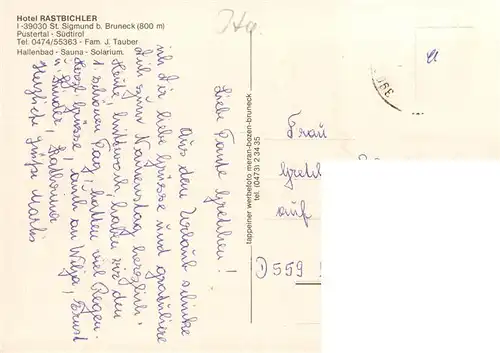 Hotel RASTBICHLER
I -39030 St. Sigmund b. Bruneck (800 m)
Pustertal - Südtirol
Tel. 0474/55363 - Fam. J. Tauber
Hallenbad - Sauna - Solarium.
Liebe Tante Gretchen!
Aus dem Urlaub schicke
ich Dir liebe Grüsse und gratuliere
Dir zum Namenstag herzlich.
Heute, Mittwoch, haben wir den
1. schönen Tag, hatten viel Regen.
Herzl. Grüsse, auch an Ernst
u. Kinder,
Herzliche Grüße
tappeiner werbefoto meran-bozen-bruneck
tel. (0473) 2 34 35
Frau
auf
D 559